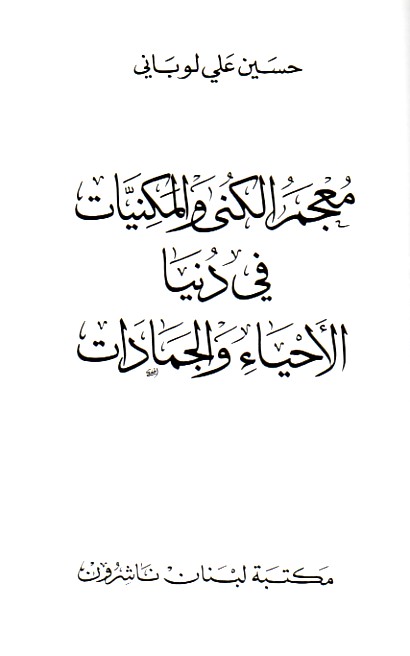 حسين علي لوباني
معجمُ الكُنى والمكنيَّات
في دُنيَا
الأحياءِ والجمَادَات
مكتبة لبنان ناشرون